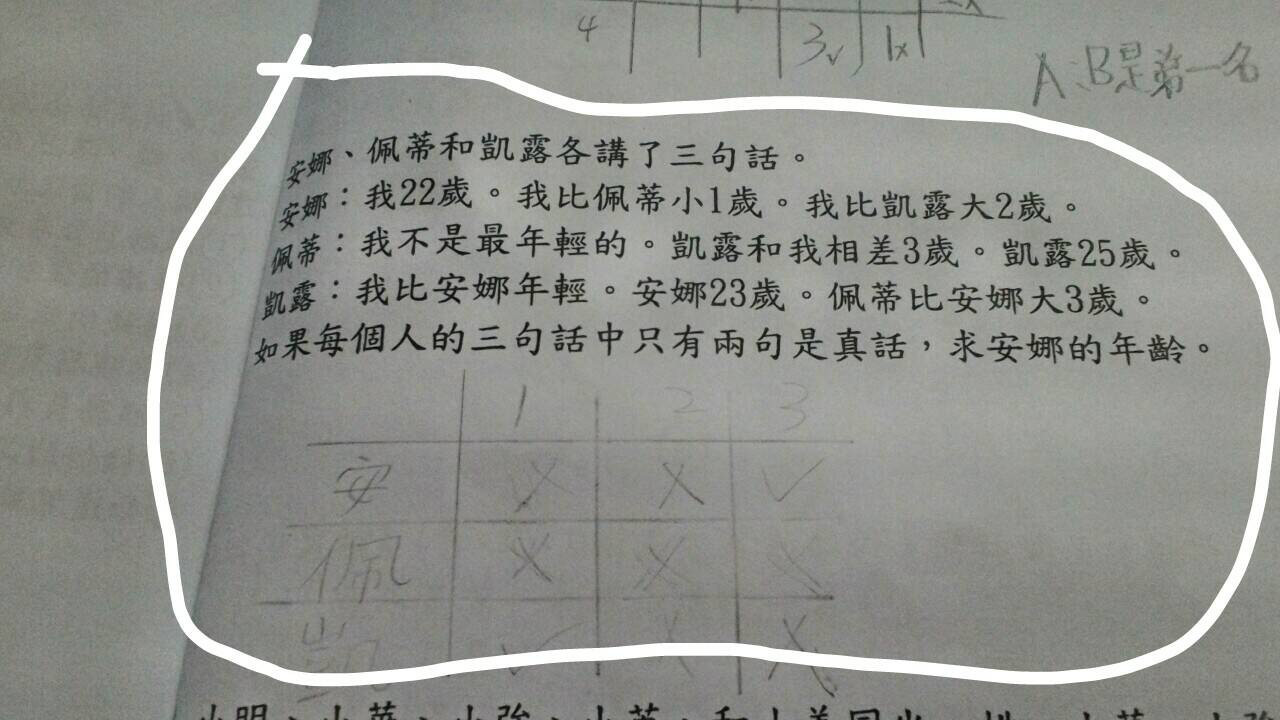 4 3✓ 1x
A:B是第一名
安娜、佩蒂和凱露各講了三句話。
安娜：我22歲。我比佩蒂小1歲。我比凱露大2歲。
佩蒂：我不是最年輕的。凱露和我相差3歲。凱露25歲。
凱露：我比安娜年輕。安娜23歲。佩蒂比安娜大3歲。
如果每個人的三句話中只有兩句是真話，求安娜的年齡。
1 2 3
安 X ✓
佩 X X
凱 ✓ X X